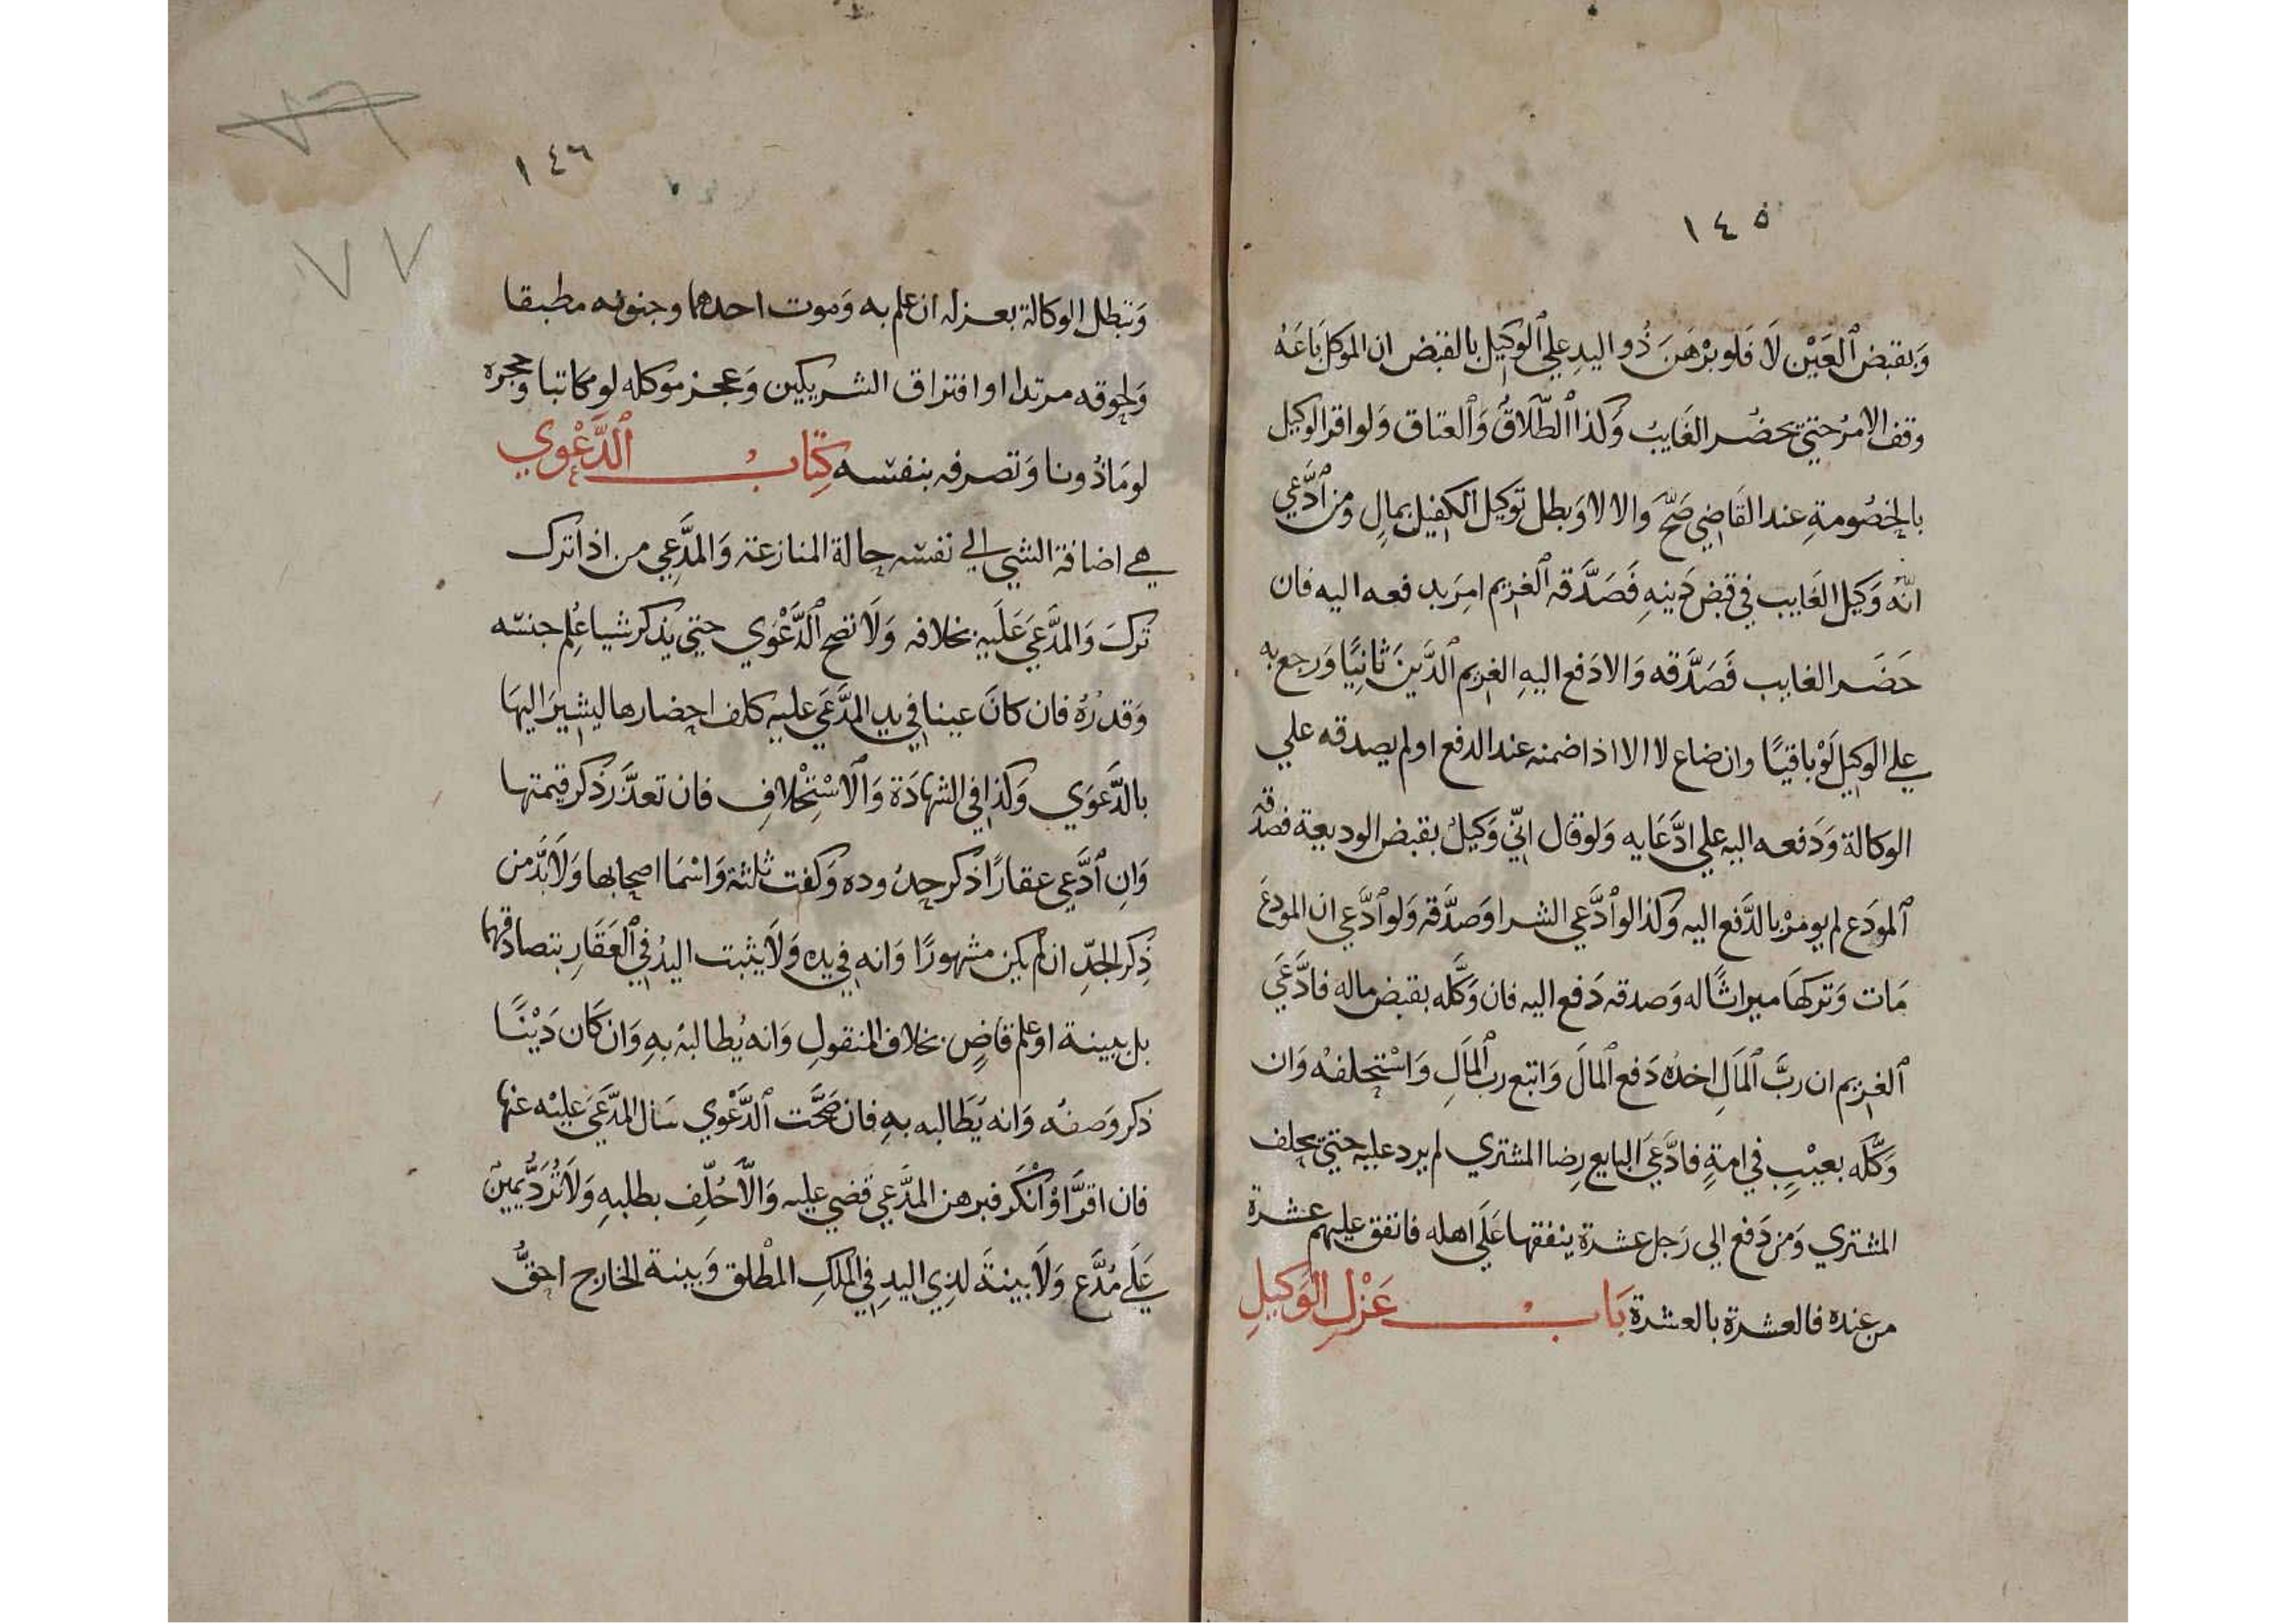 ١٤٥
وَبقبض ٱلعَيْن لَا فَلو برْهَنَ ذُو اليدِ علي ٱلوَكيل بالقبض ان الموكل بَاعَهُ
وقف الامرُ حتي يحضُر الغَايبُ وَكذا ٱلطَّلَاقُ وَٱلعتاق وَلو اقرالوكيل
بالخصُومةِ عند القَاضِي صَحَّ وَالا لا وَبطل توكيل الكفيل بمالٍ ومن ٱدَّعي
انَّه وَكيل الغَايب في قبض دَينهِ فَصَدَّقه ٱلغريم امِرَ بدفعه اليه فان
حَضَر الغايب فَصَدَّقه وَالا دَفع اليهِ الغريم ٱلدَّينَ ثانِيًا وَرجع به
علي الوكيل لَوْ باقيًا وان ضاع لا الا اذا ضمنه عند الدفع او لم يصدقه علي
الوكالة وَدَفعه اليه علي ادَّعَايه وَلو قال انّي وَكيلٌ بقبض الوديعة فصدّقه
ٱلمودَع لم يومرْ بالدَّفع اليه وَكذا لو ٱدَّعي الشرا وَصدَّقه وَلو ٱدَّعي ان المودِعَ
مَات وَتركهَا ميراثًا له وَصدقه دَفع اليه فان وَكَّله بقبض ماله فادَّعَي
ٱلغريم ان ربَّ ٱلمَالِ اخذه دَفع ٱلمَالَ وَاتبع رب ٱلمَالِ وَاسْتحلفهُ وَان
وَكَّله بعيْبٍ في امةٍ فادَّعَي البايع رِضا المشتري لم يرد عليه حتي يحلف
المشتري وَمن دَفع الي رَجل عشرة ينفقها عَلَي اهله فانفق عليهم عشرة
من عنده فالعشرة بالعشرة بَاب عَزْلِ الوَكيلِ
١٤٦
٧٧
وَتبطل الوكالة بعزله ان علم به وَموت احدهما وجنونه مطبقا
وَلحوقه مرتدا او افتراق الشريكين وَعجز موكله لو مكاتبا وَحجره
لو مَاذُونا وَتصرفه بنفسه كِتاب ٱلدَّعْوي
هي اضافة الشي الي نفسه حالة المنازعة وَالمدَّعِي من اذا ترك
تُرِكَ وَالمدَّعَي عَلَيه بخلافه وَلَا تصح ٱلدَّعْوَي حتي يذكر شيا عُلِم جنسه
وَقدْرُهُ فان كانَ عينا في يد المدَّعَي عليه كلف احضارها ليشيرَ اليهَا
بالدَّعوَي وَكذا في الشهَادَة وَٱلاسْتِحْلافِ فان تعذَّرَ ذكر قيمتها
وَانِ ٱدَّعي عقارًا ذكر حدُوده وَكفت ثلثة وَاسْمَا اصحابها وَلَا بُدَّ من
ذِكر الجدِّ ان لم يكن مشهورًا وَانه في يده وَلَا يثبت اليدُ في ٱلعَقَارِ بتصادقهما
بل ببينة او علم قاضٍ بخلاف المنقولِ وَانه يُطالبهُ بهِ وَان كَان دَيْنًا
ذكر وَصفُه وَانه يُطَالبه بهِ فان صَحَّت ٱلدَّعْوي سَال المدَّعَي عليْه عنها
فان اقرَّ اوْ انْكَر فبرهن المدَّعي قضي عليه وَالَّا حُلِّف بطلبهِ وَلَا تُرَدُّ يَمِينٌ
عَلَي مُدَّعٍ وَلَا بينةَ لذِي اليدِ في المِلكِ المُطْلَق وَبينة الخارج احقُّ